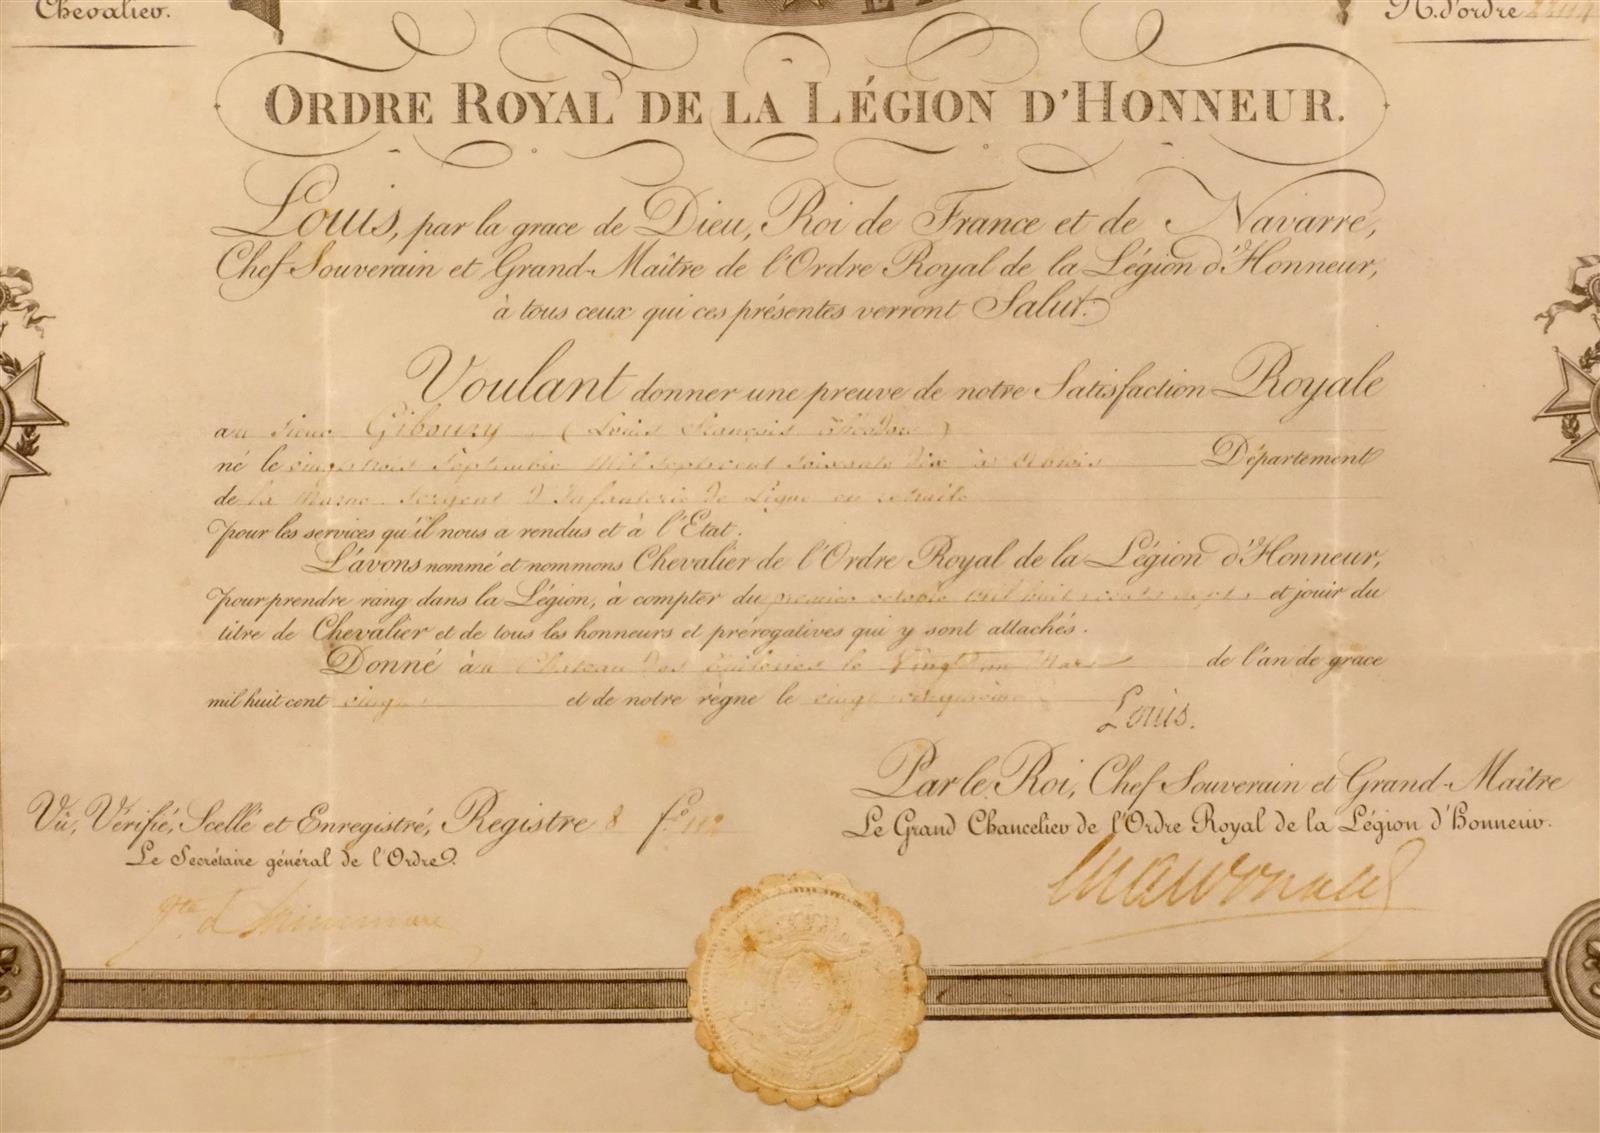 Chevalier.
N. d'ordre
ORDRE ROYAL DE LA LÉGION D'HONNEUR.
Louis, par la grace de Dieu, Roi de France et de Navarre,
Chef Souverain et Grand-Maître de l'Ordre Royal de la Légion d'Honneur,
à tous ceux qui ces présentes verront Salut.
Voulant donner une preuve de notre Satisfaction Royale
au Sieur Giboury (Louis François Théodore)
né le vingt trois Septembre Mil Sept cent soixante dix à Ablois Département
de la Marne Sergent d'Infanterie de Ligne en retraite
pour les services qu'il nous a rendus et à l'Etat.
L'avons nommé et nommons Chevalier de l'Ordre Royal de la Légion d'Honneur,
pour prendre rang dans la Légion, à compter du premier octobre mil huit cent sept, et jouir du
titre de Chevalier et de tous les honneurs et prérogatives qui y sont attachés.
Donné au Chateau des Tuileries le Vingt un Mars de l'an de grace
mil huit cent et de notre règne le
Louis.
Par le Roi, Chef Souverain et Grand-Maître
Vu, Vérifié, Scellé et Enregistré, Registre 8 f.o 112
Le Grand Chancelier de l'Ordre Royal de la Légion d'honneur.
Le Secrétaire général de l'Ordre.
Macdonald